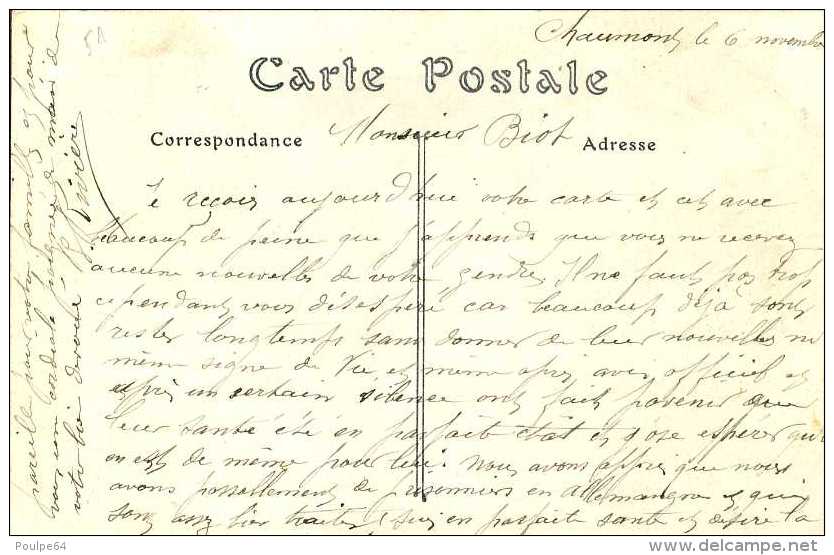 Chaumont le 6 novembre
Carte Postale
Correspondance
Adresse
Monsieur Biot
Je reçois aujourd'hui votre carte et cet avec
beaucoup de peine que j'apprends que vous ne recevez
aucune nouvelles de votre gendre. Il ne faut pas trop
cependant vous désespéré car beaucoup déjà sont
rester longtemps sans donner de leur nouvelles ni
même signe de Vie et même après avis officiel et
après un certain silence ont fait parvenir que
leur santé été en parfait état et j'ose esperer qu'il
en est de même pour lui. Nous avons appris que nous
avons passablement de prisonniers en Allemangne et qui
sont assez bien traiter. suis en parfaite santé et désire la
pareille pour votre famille et pour
vous une cordiale poignée de main de
votre bien dévoué
Poulpe64
www.delcampe.net